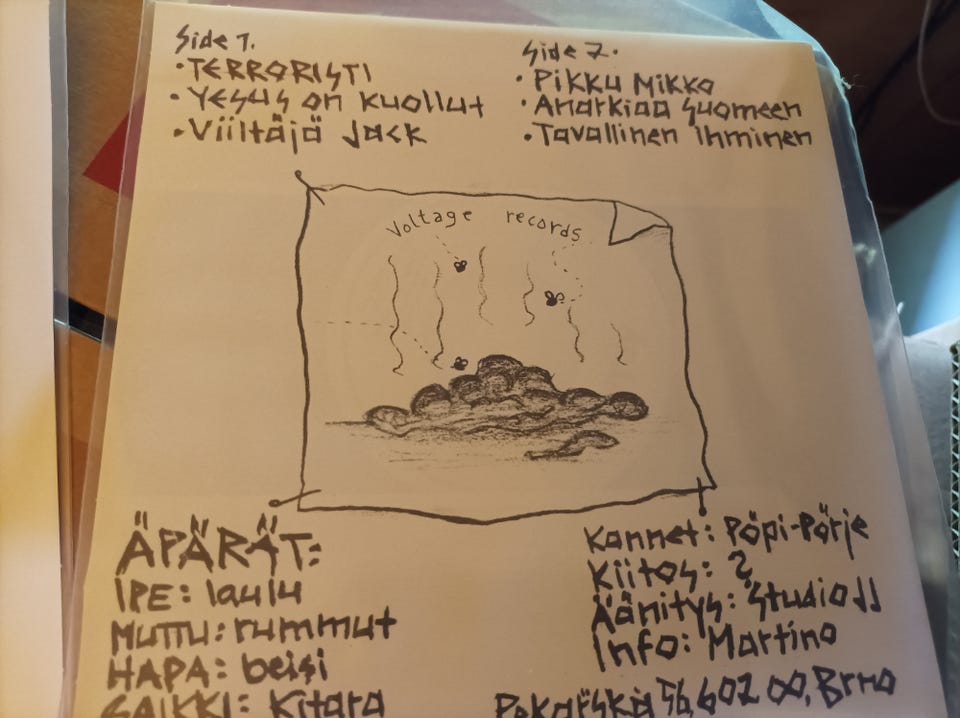 Side 1.
• TERRORISTI
• YESUS on kuollut
• Viiltäjä Jack
Side 2.
• Pikku Mikko
• Anarkiaa Suomeen
• Tavallinen ihminen
Voltage records
ÄPÄRÄT:
IPE: laulu
MUTTU: rummut
HAPA: beisi
SAIKKI: Kitara
Kannet: Pöpi-Pörje
Kiitos: ?
Äänitys: Studio JJ
Info: Martino
Pekařská 56, 602 00, Brno